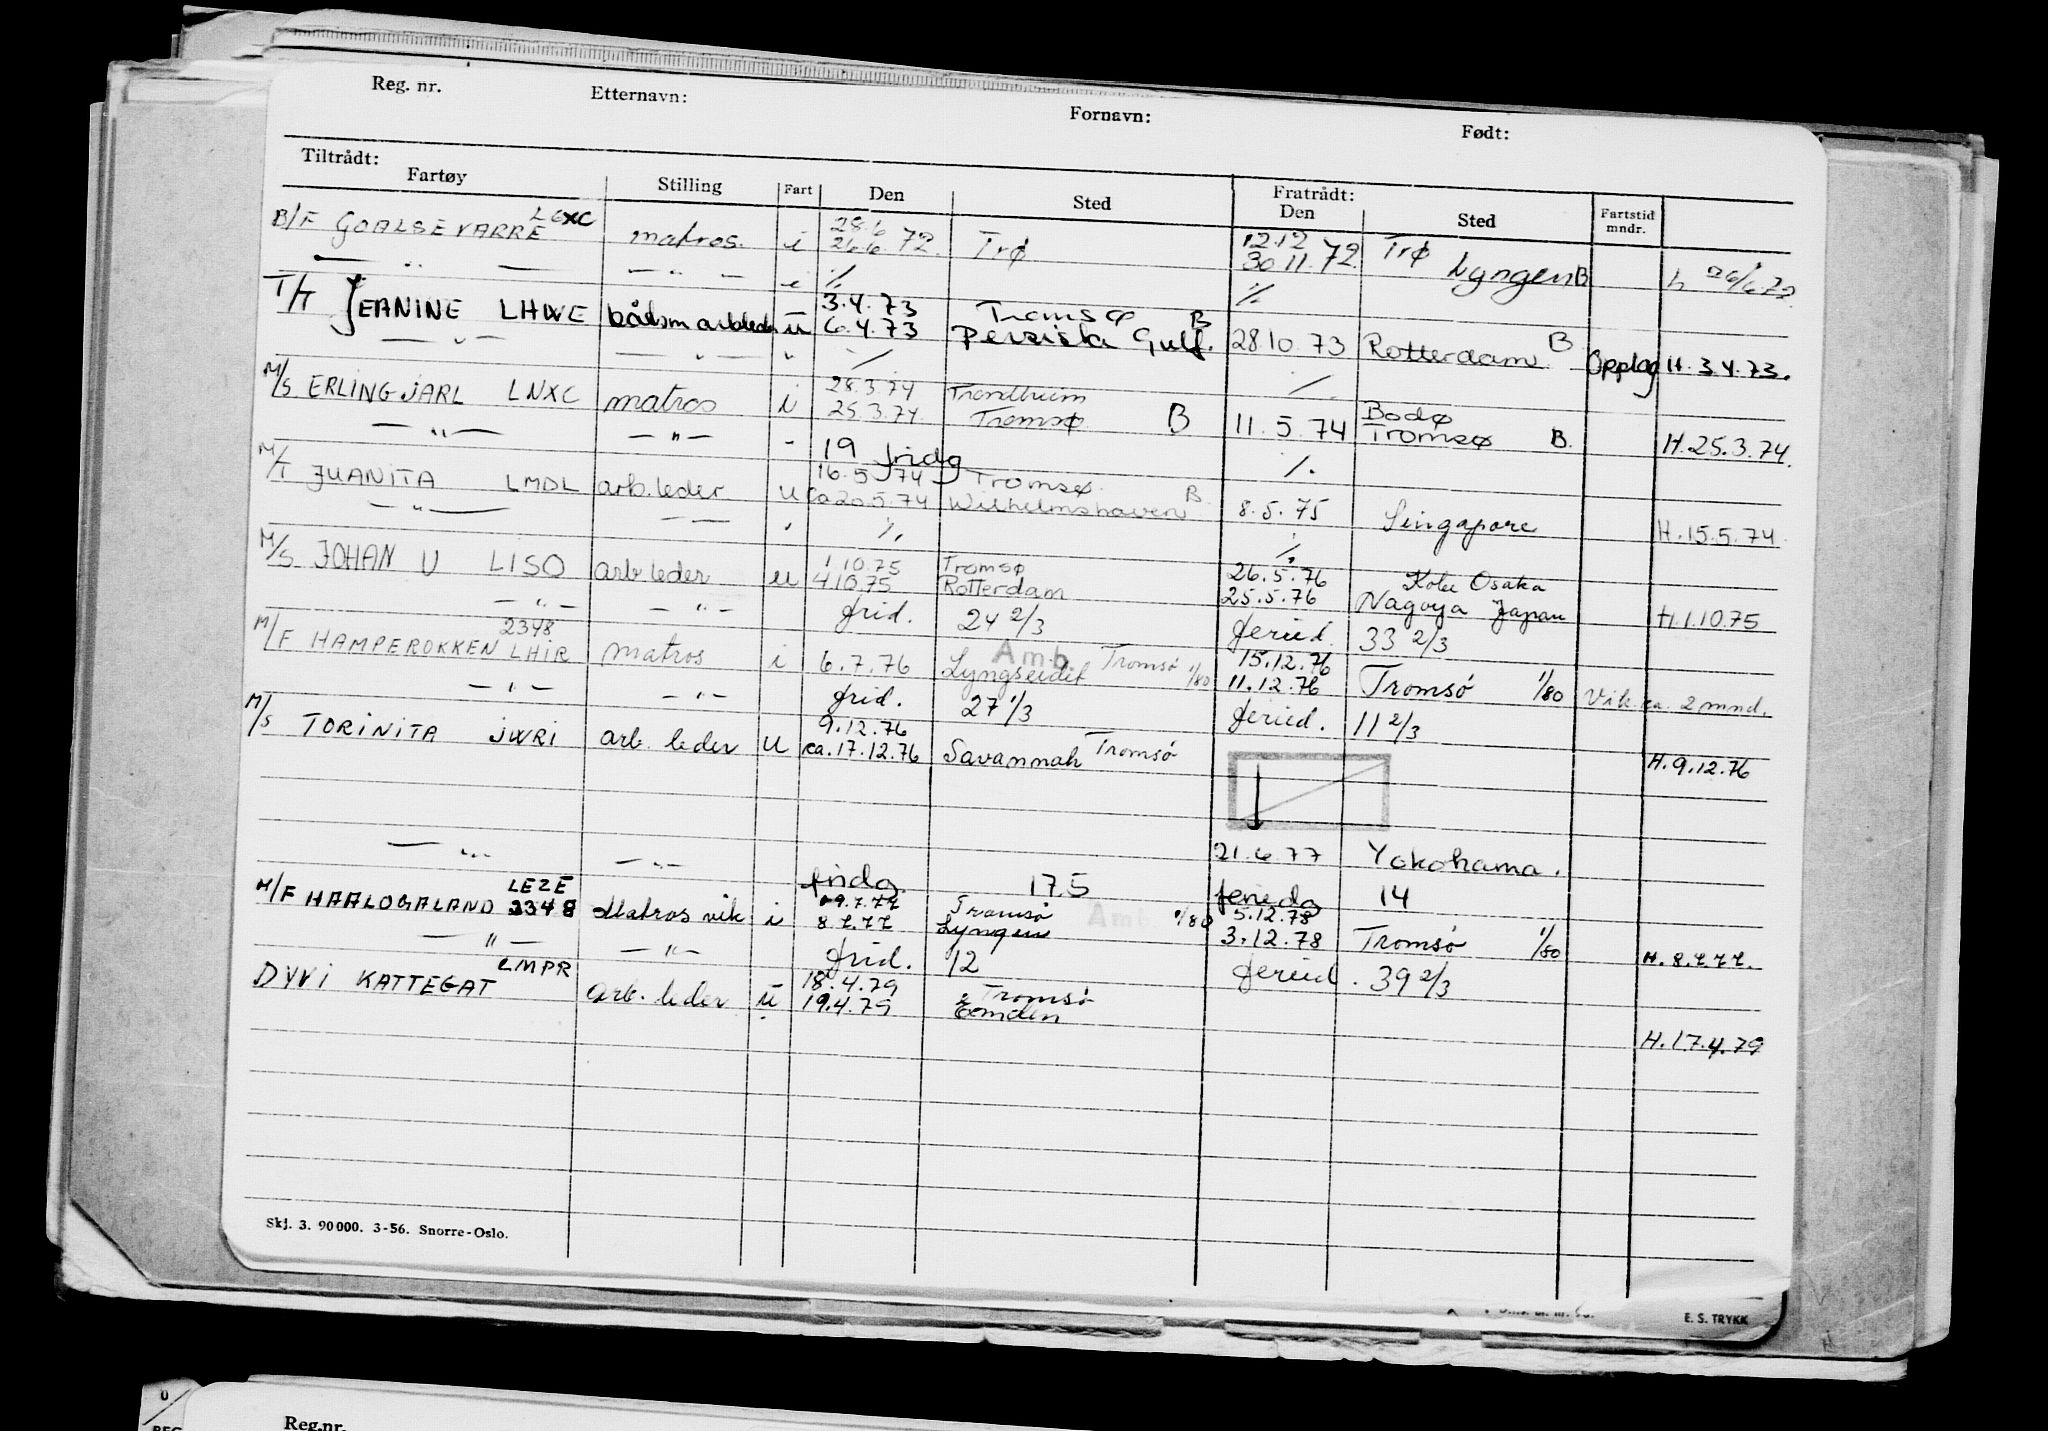 Reg. nr. Etternavn: Fornavn: Født:
Tiltrådt: Fratrådt:
Fartøy Stilling Fart Den Sted Den Sted Fartstid mndr.
LGXC 28.6 12.12
B/F GOALSEVARRE matros. i 26.6. 72. Trø 30 11. 72. Trø Lyngen B h 26/6.72.
— " — — " — i /. /.
3.4.73 Tromsø B
T/T JEANINE LHWE båtsm arbleder u 6.4.73 Persiska Gulf. 28.10.73 Rotterdam B Opplag H. 3.4.73.
— " — — " — " /. /.
28.3.74 Trondheim Bodø
M/S ERLING JARL LNXC matros i 25.3.74. Tromsø B 11.5.74 Tromsø B. H.25.3.74.
— " — — " — - 19 fridg /.
16.5.74 Tromsø B
M/T JUANITA LMDL arb.leder u ca 20.5.74 Wilhelmshaven 8.5.75 Singapore H.15.5.74.
— " — — — " /. /.
1 10.75 Tromsø 26.5.76 Kobe Osaka
M/S JOHAN U LISO arb leder u 4.10.75 Rotterdam 25.5.76 Nagoya Japan H.1.10.75
— " — — " — frid. 24 2/3 feried. 33 2/3
2348 Amb. 15.12.76
M/F HAMPEROKKEN LHIR matros i 6.7.76 Lyngseidet Tromsø 1/80 11.12.76 Tromsø 1/80 Vik. ca. 2 mnd.
— " — — " — frid. 27 1/3 feried. 11 2/3
9.12.76
M/S TORINITA JWRI arb. leder u ca.17.12.76 Savannah Tromsø H.9.12.76
— " — — " — 21.6.77 Yokohama.
fridg. 17.5 feriedg 14
LEZE 09.7.77 Tromsø 5.12.78
M/F HAALOGALAND 2348 Matros vik i 8.7.77 Lyngen Amb. 1/80 3.12.78 Tromsø 1/80 H. 8.7.77.
— " — — " — frid. 12 feried. 39 2/3
LMPR 18.4.79 Tromsø
DYVI KATTEGAT arb. leder u 19.4.79 Emden H.17.4.79
Skj. 3. 90 000. 3-56. Snorre-Oslo.
E. S. TRYKK
Reg.nr.